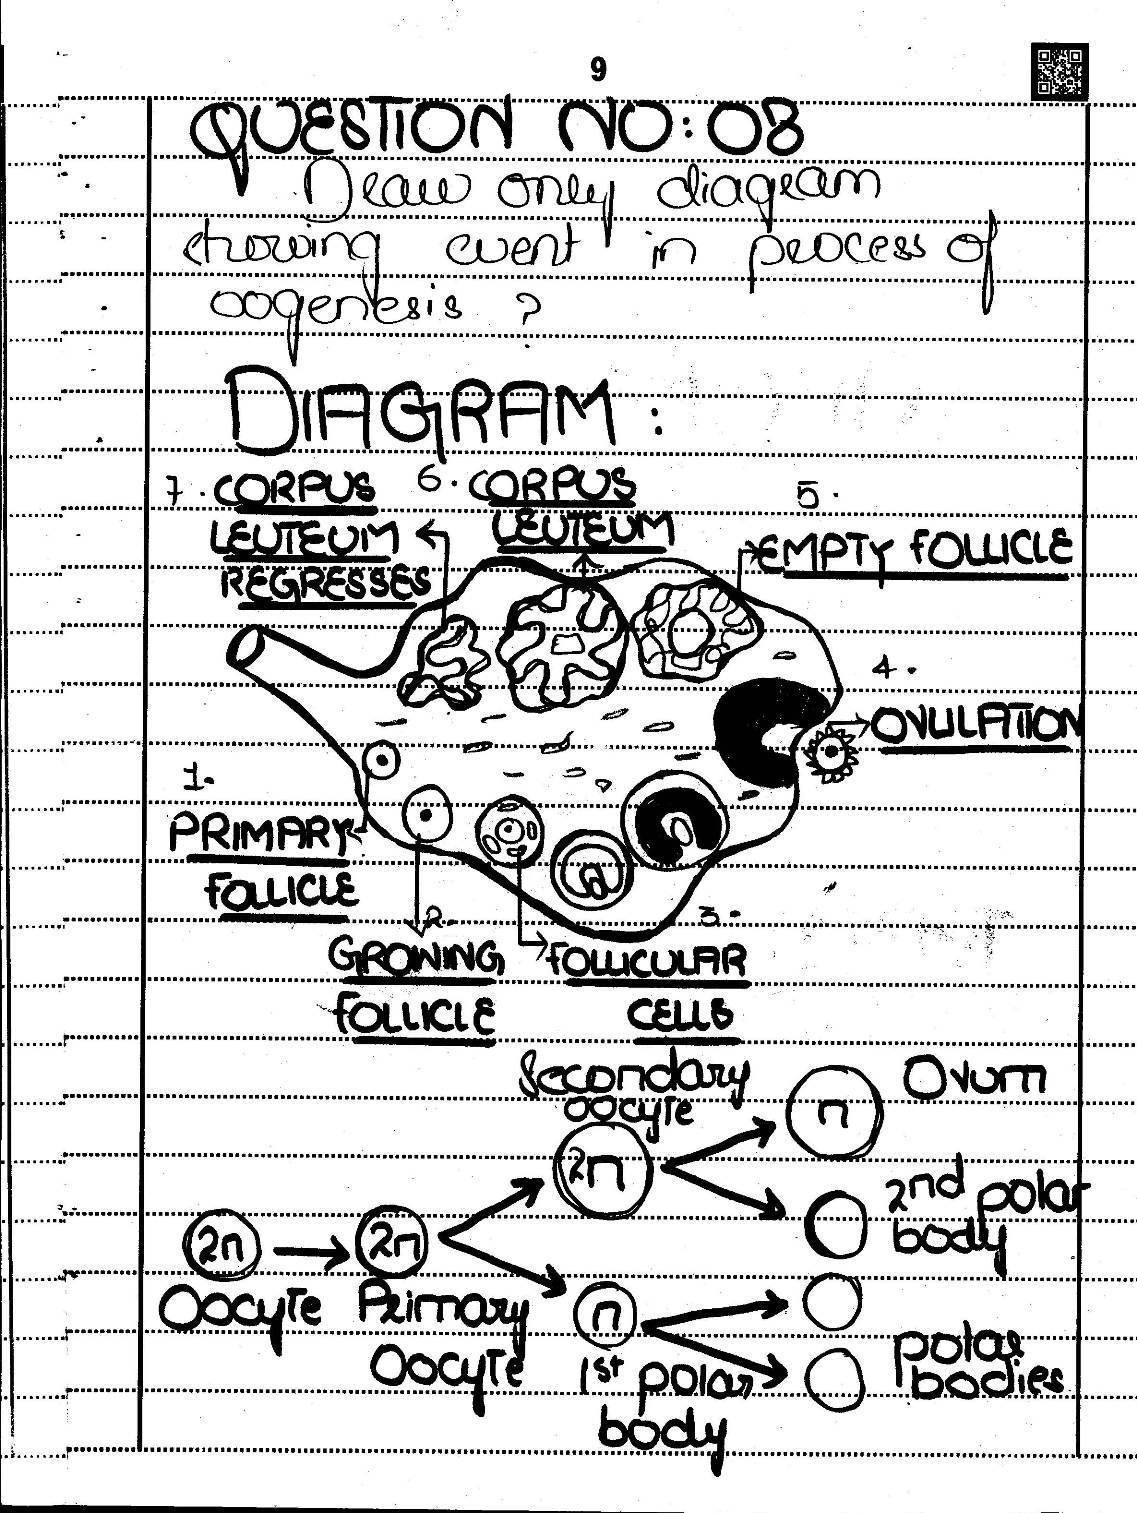 9
QUESTION NO: 08
Draw only diagram
showing event in process of
oogenesis ?
DIAGRAM :
7. CORPUS
LEUTEUM
REGRESSES
6. CORPUS
LEUTEUM
5.
EMPTY FOLLICLE
4.
OVULATION
1.
PRIMARY
FOLLICLE
2.
GROWING
FOLLICLE
3.
FOLLICULAR
CELLS
Secondary
oocyte
2n
n
Ovum
2nd polar
body
2n
Oocyte
2n
Primary
Oocyte
n
1st polar
body
polar
bodies